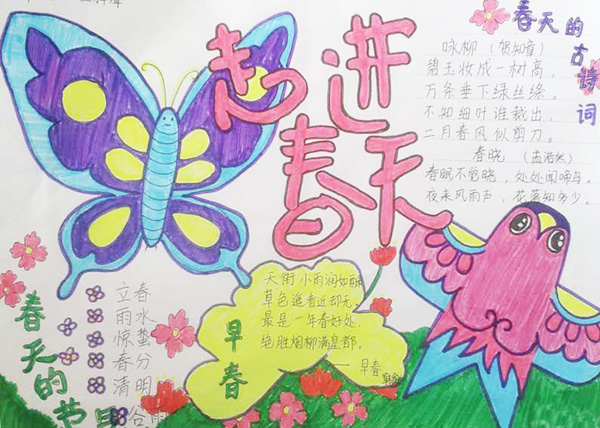 走进
春天
春天的古诗词
咏柳（贺知章）
碧玉妆成一树高，
万条垂下绿丝绦。
不知细叶谁裁出，
二月春风似剪刀。
春晓（孟浩然）
春眠不觉晓，处处闻啼鸟。
夜来风雨声，花落知多少。
早春
天街小雨润如酥
草色遥看近却无，
最是一年春好处，
绝胜烟柳满皇都。
——早春
春天的节
立春
雨水
惊蛰
春分
清明
谷雨